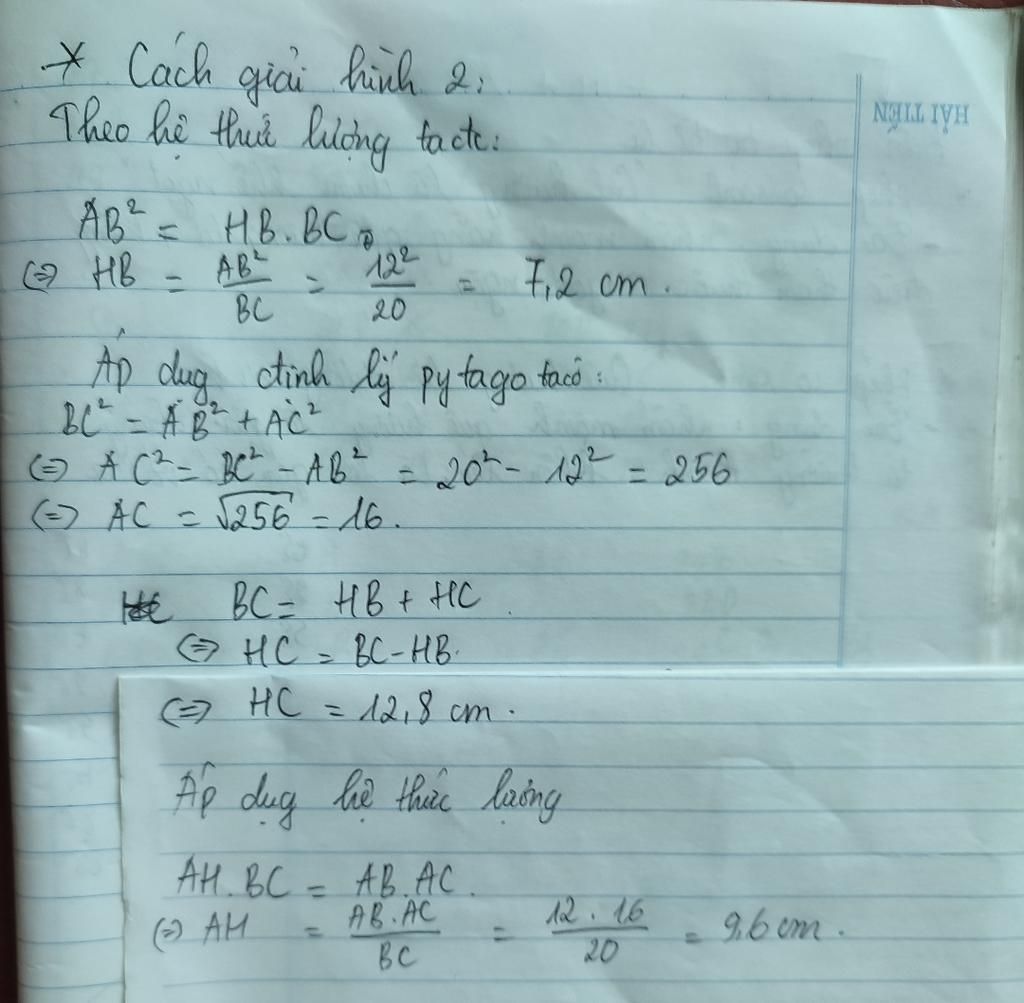 * Cách giải hình 2:
HẢI TIẾN
Theo hệ thức lượng tactc:
AB² = HB.BC
(=) HB = AB²/BC = 12²/20 = 7,2 cm.
Áp dug định lý pytago tacó:
BC² = AB² + AC²
(=) AC² = BC² - AB² = 20² - 12² = 256
(=) AC = √256 = 16.
BC = HB + HC.
(=) HC = BC-HB.
(=) HC = 12,8 cm.
Áp dụg hệ thức lượng
AH.BC = AB.AC.
(=) AH = AB.AC/BC = 12.16/20 = 9,6 cm.